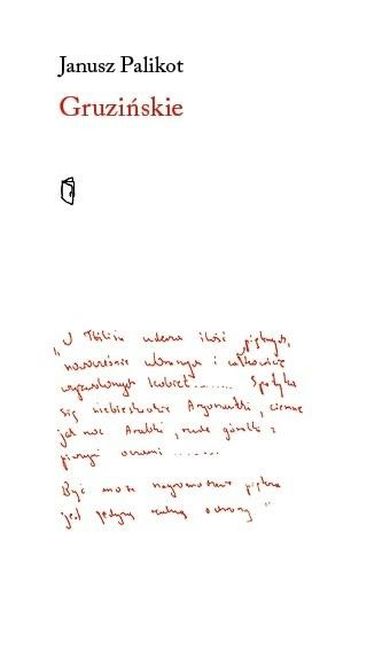 Janusz Palikot
Gruzińskie
„W Tbilisi uderza ilość pięknych,
nowocześnie ubranych i całkowicie
wyzwolonych kobiet........ Spotyka
się niebieskookie Argonautki, ciemne
jak noc Arabki, rude góralki z
oczami .......
Być może nagromadzenie piękna
jest jedyną realną ochroną”